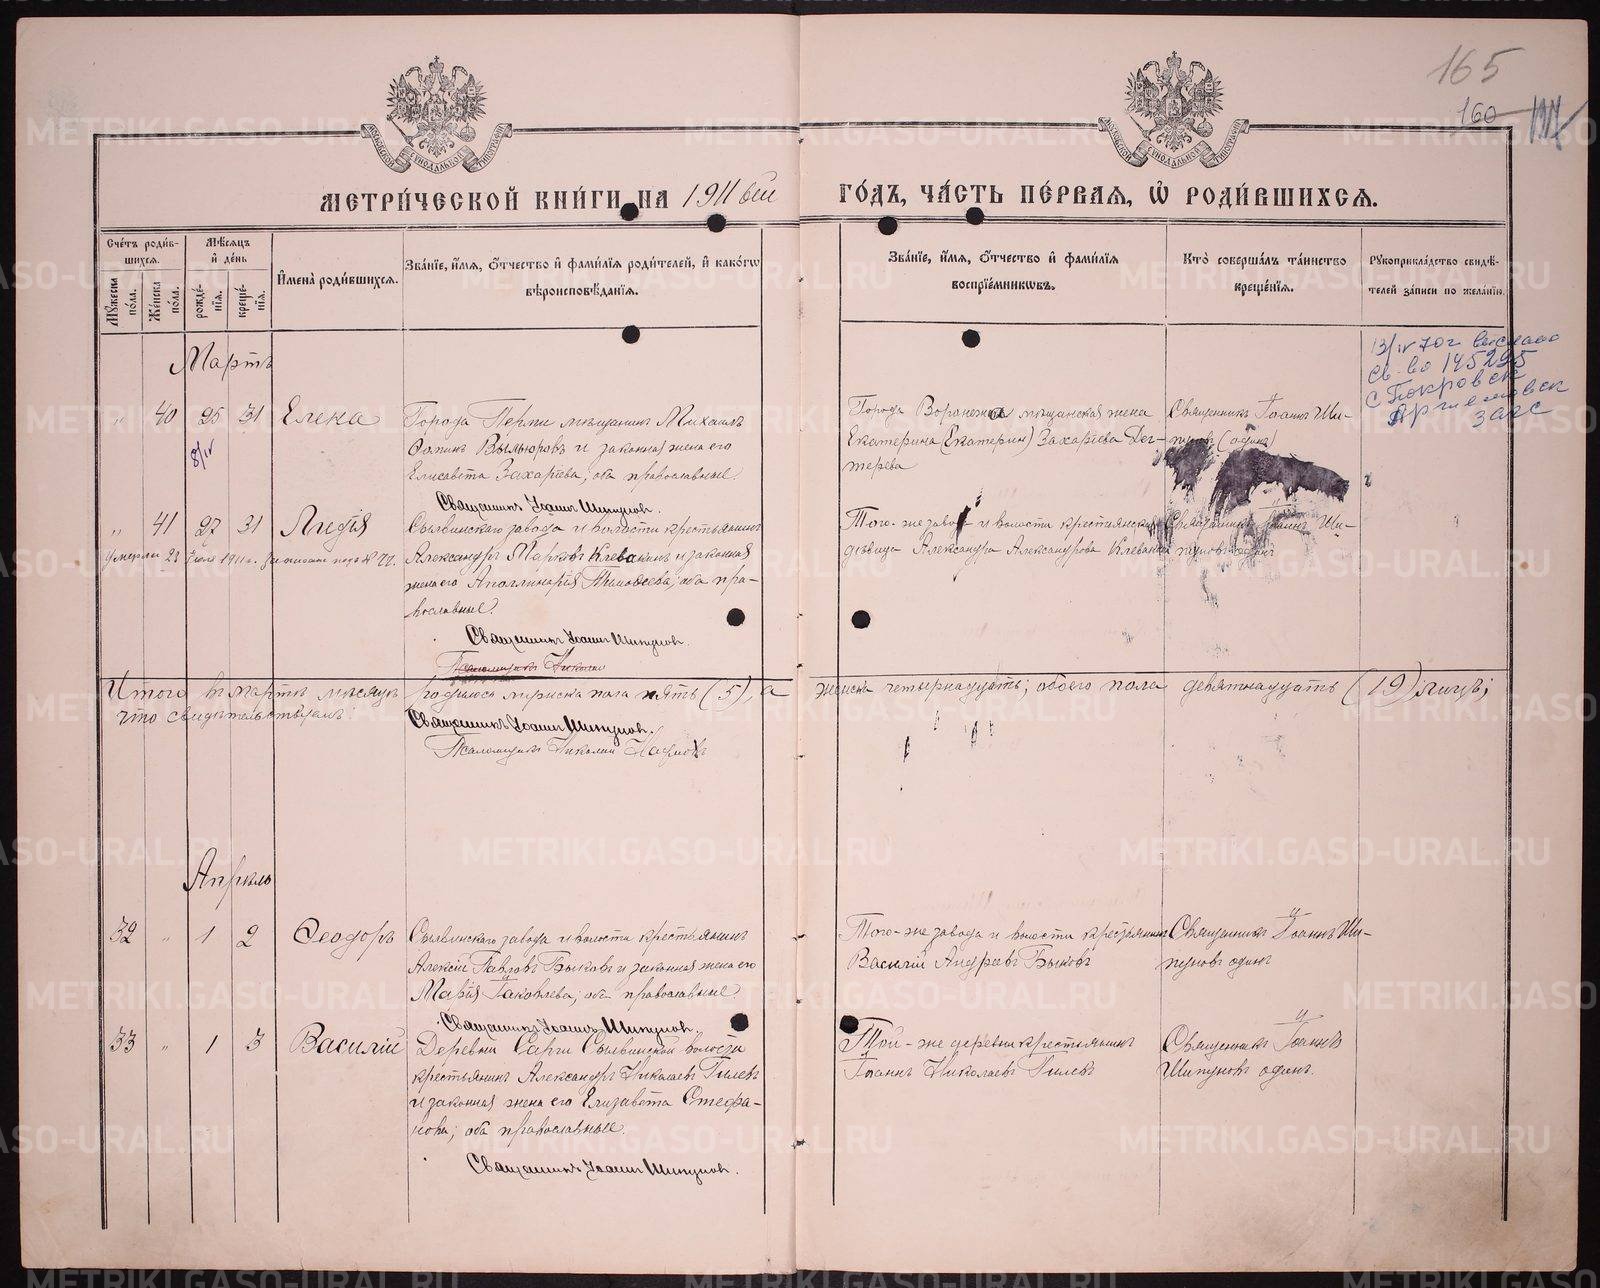 165
160
МЕТРИ́ЧЕСКОЙ КНИ́ГИ НА 1911 ый ГО́ДЪ, ЧА́СТЬ ПЕ́РВАЯ, Ѡ҆ РОДИ́ВШИХСЯ.
Сче́тъ роди́в-
шихся.
Му́жеска по́ла.
Же́нска по́ла.
Мѣ́сяцъ и҆ де́нь
рожде́-нїя.
креще́-нїя.
И҆мена̀ роди́вшихся.
Зва́нїе, и҆́мя, ѻ҆́тчество и҆ фами́лїя роди́телей, и҆ како́гѡ
вѣроисповѣ́данїя.
Зва́нїе, и҆́мя, ѻ҆́тчество и҆ фами́лїя
воспрїе́мникѡвъ.
Кто̀ соверша́лъ та́инство
креще́нїя.
Рꙋкоприкла́дство свидѣ́-
телей за́писи по жела́нїю.
Мартъ
13/IV 70г выслано
св-во 145295
с Покровск
Артемовск
ЗАГС
" 40 25 31 Елена
8/IV
Города Перми мѣщанинъ Михаилъ
Выльюровъ и законная жена его
Елисавета Захаріева, оба православные.
Священникъ Іоаннъ Шипуновъ.
Города Воронежа мѣщанская жена
Екатерина (Екатерин) Захаріева Дег-
терева
Священникъ Іоаннъ Ши-
пуновъ (одинъ)
" 41 27 31 Лидія
умерла 21 Іюля 1911 г. записано подъ № 77.
Сылвинскаго завода и волости крестьянинъ
Александръ Марковъ Клевакинъ и законная
жена его Аполлинарія Тимоѳеева; оба пра-
вославные.
Священникъ Іоаннъ Шипуновъ.
Псаломщикъ Николай
Того-же завода и волости крестьянская
дѣвица Александра Александрова Клевакина
Священникъ Іоаннъ Ши-
пуновъ одинъ
Итого въ мартѣ мѣсяцѣ родилось мужска пола пять (5), а женска четырнадцать; обоего пола девятнадцать (19) лицъ;
что свидѣтельствуемъ:
Священникъ Іоаннъ Шипуновъ.
Псаломщикъ Николай
Апрѣль
32 " 1 2 Ѳеодоръ
Сылвинскаго завода и волости крестьянинъ
Алексій Павловъ Быковъ и законная жена его
Марія Іаковлева; оба православные.
Священникъ Іоаннъ Шипуновъ.
Того-же завода и волости крестьянинъ
Василій Андреевъ Быковъ
Священникъ Іоаннъ Ши-
пуновъ одинъ
33 " 1 3 Василій
Деревни Сарги Сылвинской волости
крестьянинъ Александръ Николаевъ Гилевъ
и законная жена его Елизавета Стефа-
нова; оба православные.
Священникъ Іоаннъ Шипуновъ.
Той-же деревни крестьянинъ
Іоаннъ Николаевъ Гилевъ
Священникъ Іоаннъ
Шипуновъ одинъ.
METRIKI.GASO-URAL.RU